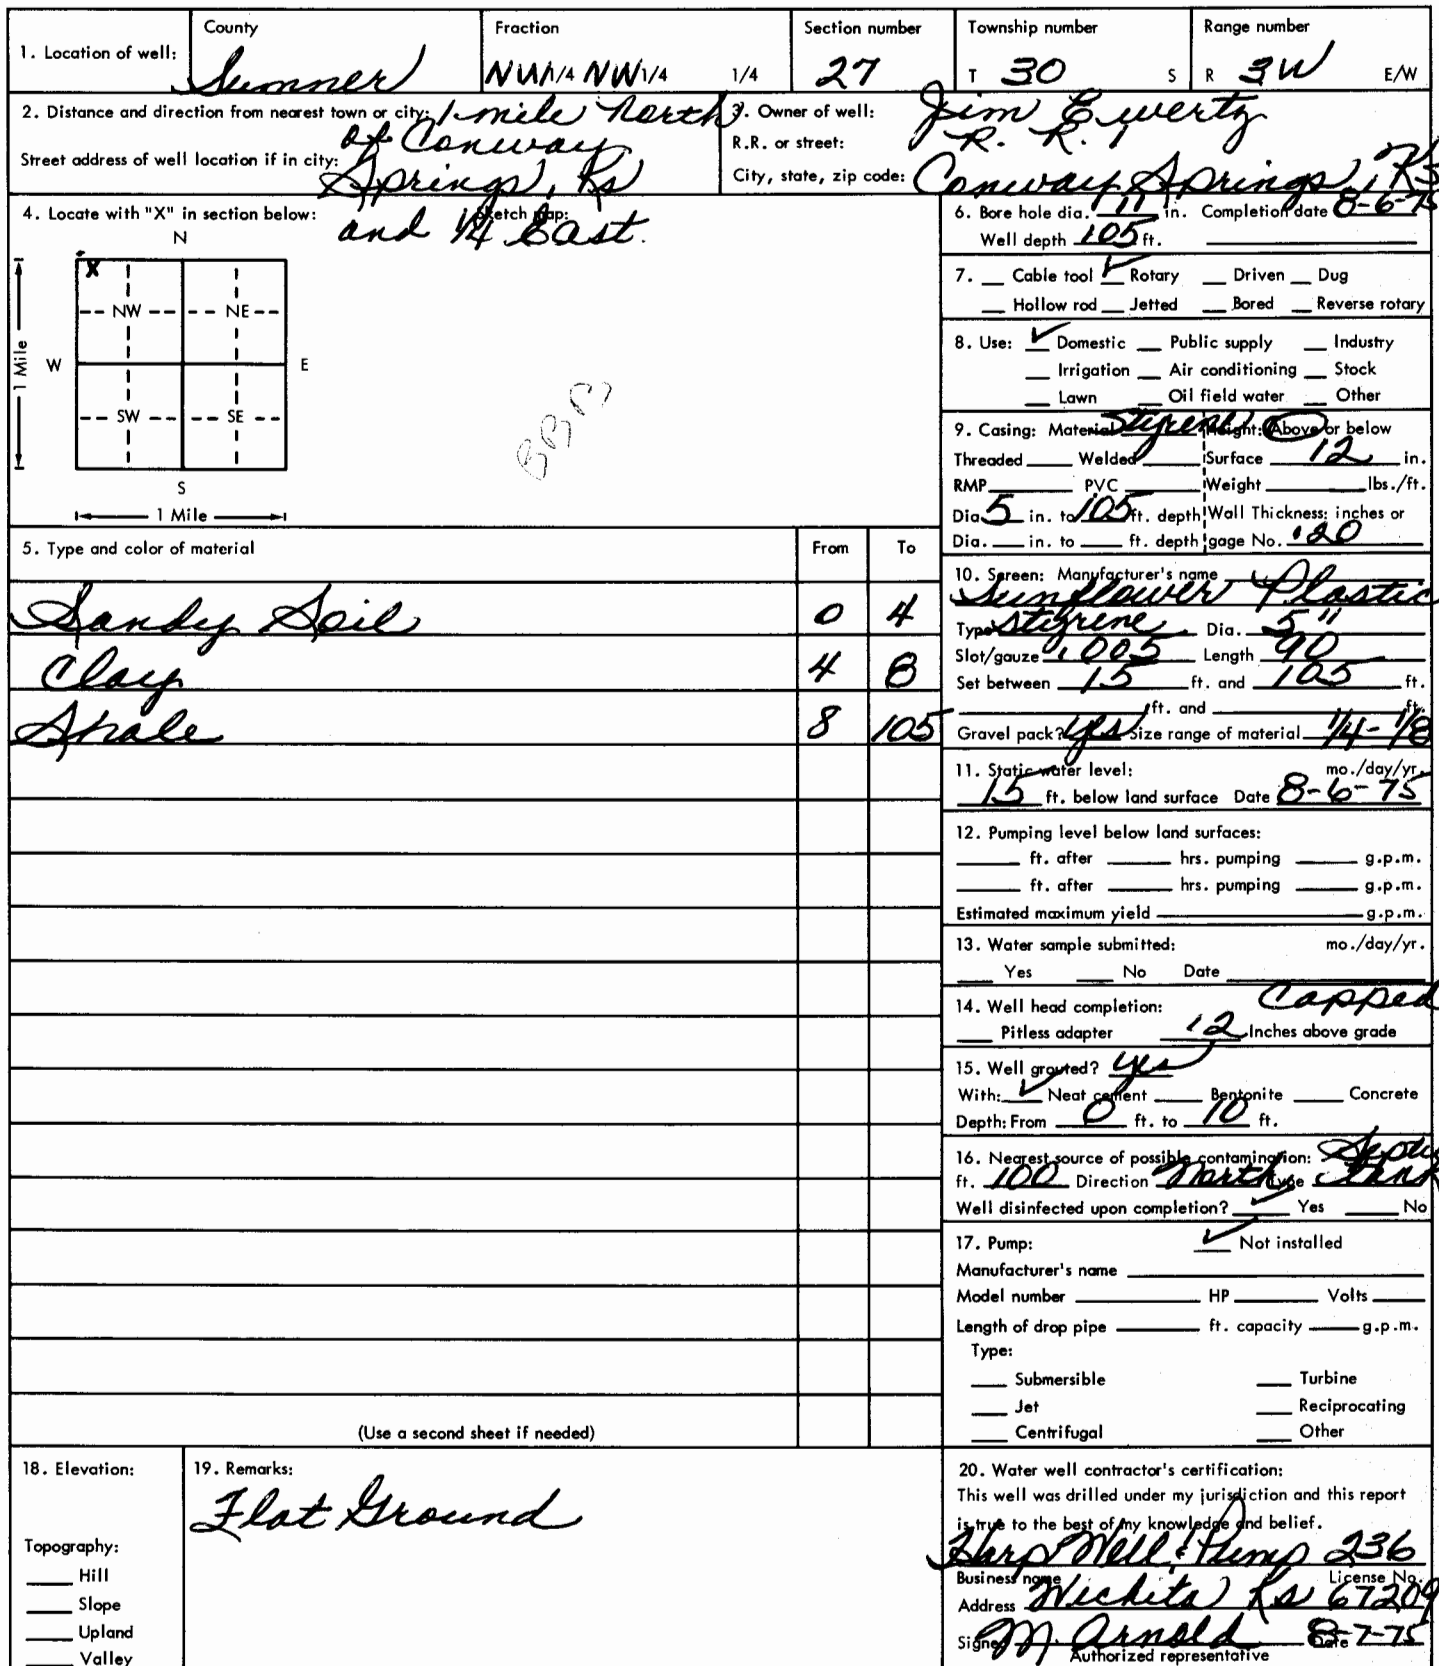 County Fraction Section number Township number Range number
1. Location of well: Sumner NW1/4 NW1/4 1/4 27 T 30 S R 3W E/W
2. Distance and direction from nearest town or city: 1 mile North
of Conway
Street address of well location if in city:
Springs, Ks
and 1/4 East.
3. Owner of well: Jim Ewertz
R.R. or street: R. R. 1
City, state, zip code: Conway Springs, Ks
4. Locate with "X" in section below: Sketch map:
N
X
NW NE
W E
SW SE
S
1 Mile
1 Mile
BBB
5. Type and color of material From To
Sandy Soil 0 4
Clay 4 8
Shale 8 105
(Use a second sheet if needed)
6. Bore hole dia. 11 in. Completion date 8-6-75
Well depth 105 ft.
7. Cable tool ✓ Rotary Driven Dug
Hollow rod Jetted Bored Reverse rotary
8. Use: ✓ Domestic Public supply Industry
Irrigation Air conditioning Stock
Lawn Oil field water Other
9. Casing: Material Styrene Height: Above or below
Threaded Welded Surface 12 in.
RMP PVC Weight lbs./ft.
Dia. 5 in. to 105 ft. depth Wall Thickness: inches or
Dia. in. to ft. depth gage No. .120
10. Screen: Manufacturer's name
Sunflower Plastic
Type Styrene Dia. 5"
Slot/gauze .005 Length 90
Set between 15 ft. and 105 ft.
ft. and ft.
Gravel pack? yes Size range of material 1/4-1/8
11. Static water level: mo./day/yr.
15 ft. below land surface Date 8-6-75
12. Pumping level below land surfaces:
ft. after hrs. pumping g.p.m.
ft. after hrs. pumping g.p.m.
Estimated maximum yield g.p.m.
13. Water sample submitted: mo./day/yr.
Yes No Date
14. Well head completion: Capped
Pitless adapter 12 Inches above grade
15. Well grouted? yes
With: ✓ Neat cement Bentonite Concrete
Depth: From 0 ft. to 10 ft.
16. Nearest source of possible contamination: Septic
ft. 100 Direction North Type Tank
Well disinfected upon completion? ✓ Yes No
17. Pump: ✓ Not installed
Manufacturer's name
Model number HP Volts
Length of drop pipe ft. capacity g.p.m.
Type:
Submersible Turbine
Jet Reciprocating
Centrifugal Other
18. Elevation:
Topography:
Hill
Slope
Upland
Valley
19. Remarks:
Flat Ground
20. Water well contractor's certification:
This well was drilled under my jurisdiction and this report
is true to the best of my knowledge and belief.
Harp Well & Pump 236
Business name License No.
Address Wichita Ks 67209
Signed M. Arnold Date 8-7-75
Authorized representative